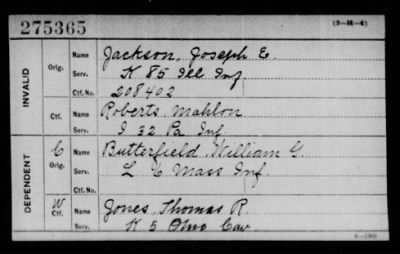 275365
(3-H-4)
INVALID
Orig.
Name Jackson, Joseph E.
Serv. K 85 Ill Inf
Ctf. No. 208402
Ctf.
Name Roberts, Mahlon
Serv. I 32 Pa Inf.
DEPENDENT
C
Orig.
Name Butterfield, William G.
Serv. L 6 Mass Inf.
Ctf. No.
W
Ctf.
Name Jones, Thomas R.
Serv. K 5 Ohio Cav.